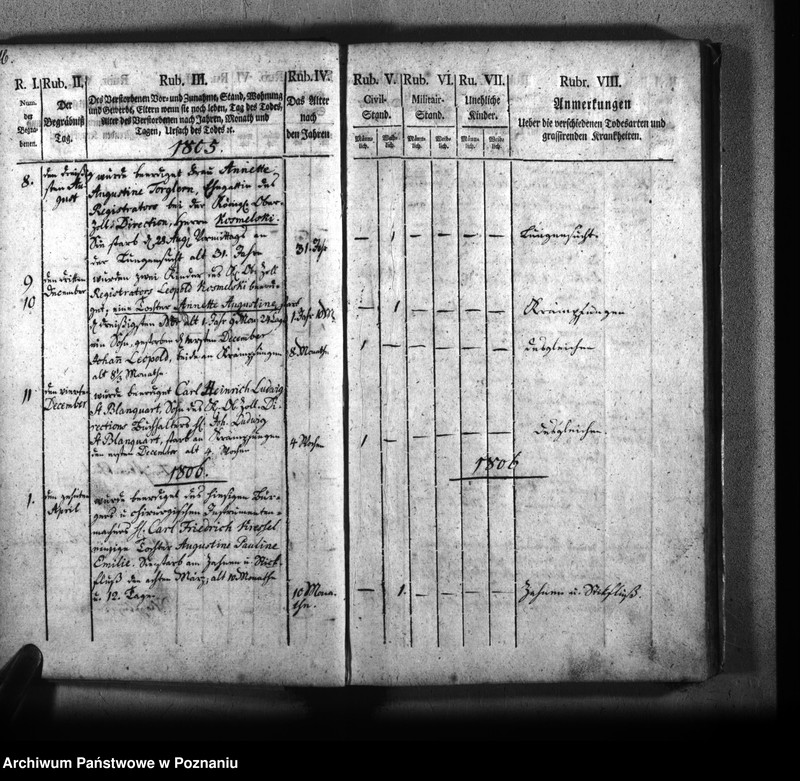 16.
R. I.
Num. der Begrabenen.
Rub. II.
Der Begräbniß Tag.
Rub. III.
Des Verstorbenen Vor- und Zunahme, Stand, Wohnung
und Gewerbe, Eltern wenn sie noch leben, Tag des Todes,
Alter des Verstorbenen nach Jahren, Monath und
Tagen, Ursach des Todes ꝛc.
Rub. IV.
Das Alter
nach
den Jahren
1805.
8.
den dreißig
sten Au
gust
wurde beerdiget Frau Annette
Augustine Torglorn, Ehegattin des
Registrators bei der Königl. Ober-
Zoll-Direction, Herrn Kosmelski.
Sie starb d. 28 Aug. Vormittags an
der Lungensucht alt 31. Jahr
31. Jahr
9
10
den dritten
December
wurden zwei Kinder des
Registrators Leopold Kosmelski beerdi-
get; eine Tochter Annette Augustine, starb
d. dreißigsten alt 1. Jahr 9 Mon.
ein Sohn, gestorben d. ersten December
Johann Leopold, beide an Krämpfungen
alt 8½ Monathe
1. Jahr
8. Monathe
11
den vierten
December
wurde beerdigt Carl Heinrich Ludwig
A Blanquart, Sohn des Zoll-Di-
rections Buchhalters H. Joh. Ludwig
A Blanquart, starb an Krämpfungen
den ersten December alt 4. Wochen
4 Wochen
1806.
1.
den zehnten
April
wurde beerdiget des hiesigen Bür-
gers u. chirurgischen Instrumenten-
machers H. Carl Friedrich Kressel
einzige Tochter Augustine Pauline
Emilie. Sie starb am Zahnen u. Stick-
fluß den achten März, alt 10 Monathe
u. 12. Tage.
10 Mona-
the.
Rub. V.
Civil-
Stand.
Männ-
lich.
Weib-
lich.
Rub. VI.
Militair-
Stand.
Männ-
lich.
Weib-
lich.
Ru. VII.
Unehliche
Kinder.
Männ-
lich.
Weib-
lich.
Rubr. VIII.
Anmerkungen
Ueber die verschiedenen Todesarten und
grassirenden Krankheiten.
— 1 — — — — Lungensucht.
— 1 — — — — Krämpfungen
1 — — — — — desgleichen
1 — — — — — desgleichen.
1806
— 1. — — — — Zahnen u. Stickfluß.
Archiwum Państwowe w Poznaniu